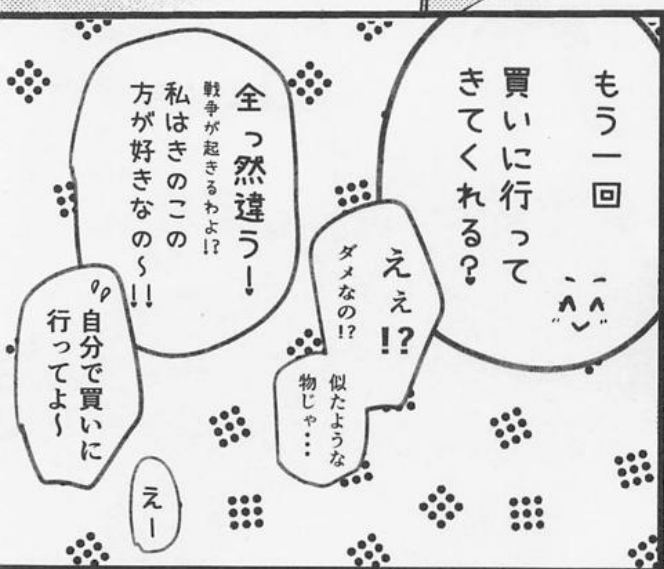 もう一回
買いに行って
きてくれる?
ええ!?
ダメなの!?
似たような
物じゃ…
全っ然違うー!
戦争が起きるわよ!?
私はきのこの
方が好きなの〜!!
自分で買いに
行ってよ〜
えー